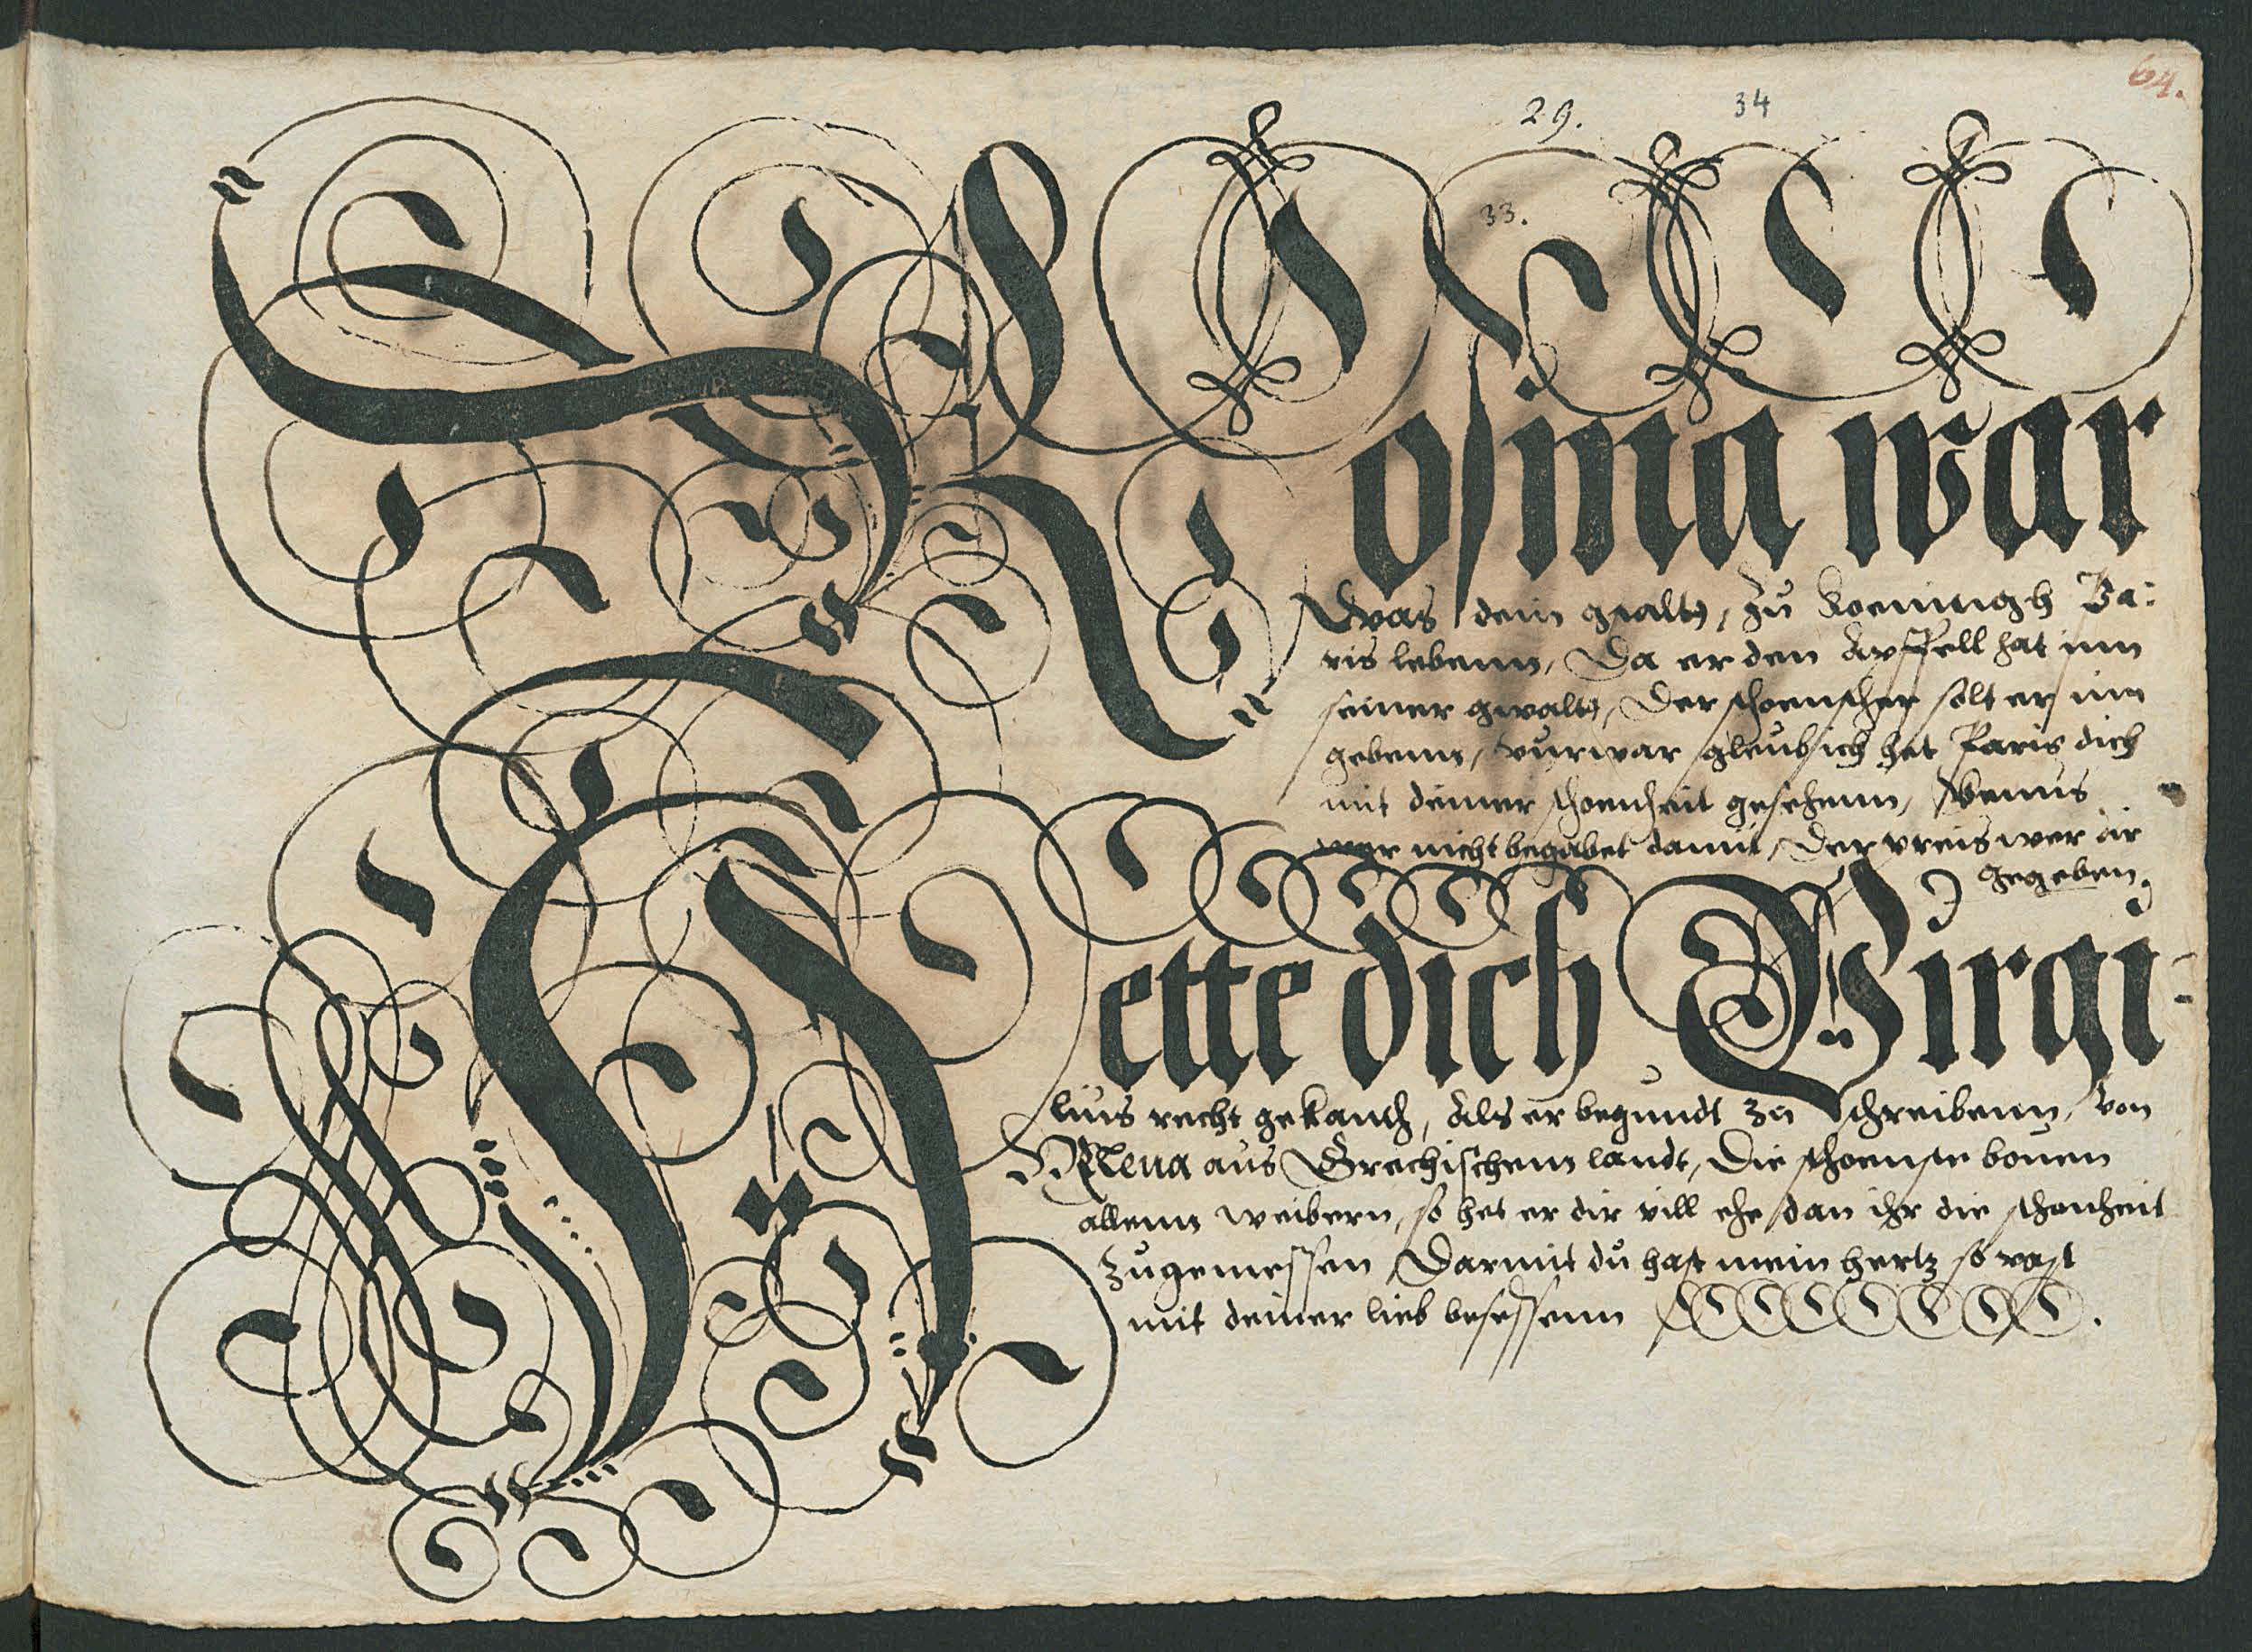 64.
29. 34
33.
Rosina war
was dein gstalt, zu koeningh Pa:
ris lebenn, Da er den Apffell hat inn
seiner gwalt, Der schoensther solt er inn
gebenn, vurwar gleub ich het Paris dich
mit deiner schoenheit gesehenn, Venus
wer nicht begabet damit, Der preis wer dir
gegeben.
Hette dich Virgi-
lius recht gekandt, Als er begundt zu schreibenn, von
Helena aus Grechischem landt, Die schoenste bouen
allenn weibern, so het er dir vill ehe dan ihr die schonheit
zugemessen Darmit du hast mein hertz so vast
mit deiner lieb besessenn